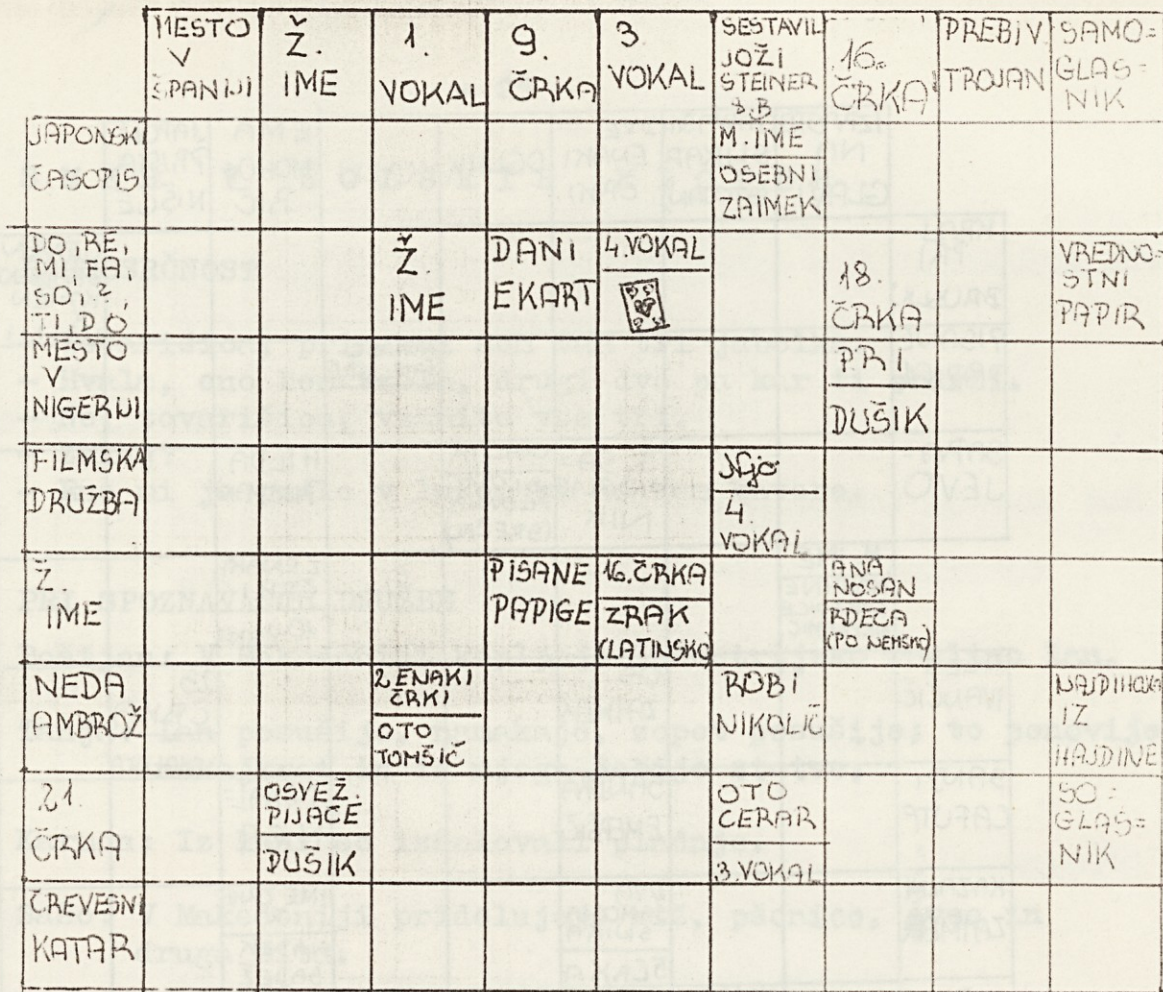 MESTO
V
ŠPANIJI
Ž.
IME
1.
VOKAL
9.
ČRKA
3.
VOKAL
SESTAVIL
JOŽI
STEINER
8.B
16.
ČRKA
PREBIV.
TROJAN
SAMO=
GLAS=
NIK
JAPONSKI
ČASOPIS
M. IME
OSEBNI
ZAIMEK
DO, RE,
MI, FA,
SO, ?,
TI, DO
Ž.
IME
DANI
EKART
4. VOKAL
18.
ČRKA
VREDNO=
STNI
PAPIR
MESTO
V
NIGERIJI
PRI
DUŠIK
FILMSKA
DRUŽBA
Njo
4.
VOKAL
Ž.
IME
PISANE
PAPIGE
16. ČRKA
ZRAK
(LATINSKO)
ANA
NOSAN
RDEČA
(PO NEMŠKO)
NEDA
AMBROŽ
2 ENAKI
ČRKI
OTO
TOMŠIČ
ROBI
NIKOLIČ
NAJDIHOJCA
IZ
HAJDINE
21.
ČRKA
OSVEŽ.
PIJAČE
DUŠIK
OTO
CERAR
3. VOKAL
SO=
GLAS=
NIK
ČREVESNI
KATAR